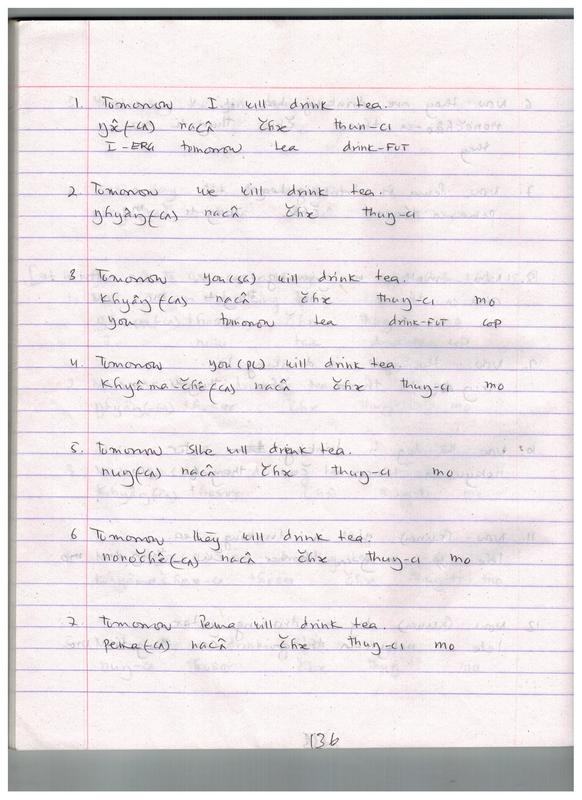 1. Tomorrow I will drink tea.
ŋx̂(-cʌ) nacʌ̂ čhx thun-cı
I-ERG tomorrow tea drink-FUT
2. Tomorrow we will drink tea.
ŋhyâŋ(-cʌ) nacʌ̂ čhx thuŋ-cı
3 Tomorrow you(SG) will drink tea.
khyâŋ(-cʌ) nacʌ̂ čhx thuŋ-cı mo
you tomorrow tea drink-FUT COP
4. Tomorrow you(PL) will drink tea.
khyâma-čhê(-cʌ) nacʌ̂ čhx thuŋ-cı mo
5. Tomorrow S/he will drink tea.
nuŋ(-cʌ) nacʌ̂ čhx thuŋ-cı mo
6 Tomorrow they will drink tea.
nonočhê(-cʌ) nacʌ̂ čhx thuŋ-cı mo
7. Tomorrow Pema will drink tea.
pema(-cʌ) nacʌ̂ čhx thuŋ-cı mo
136